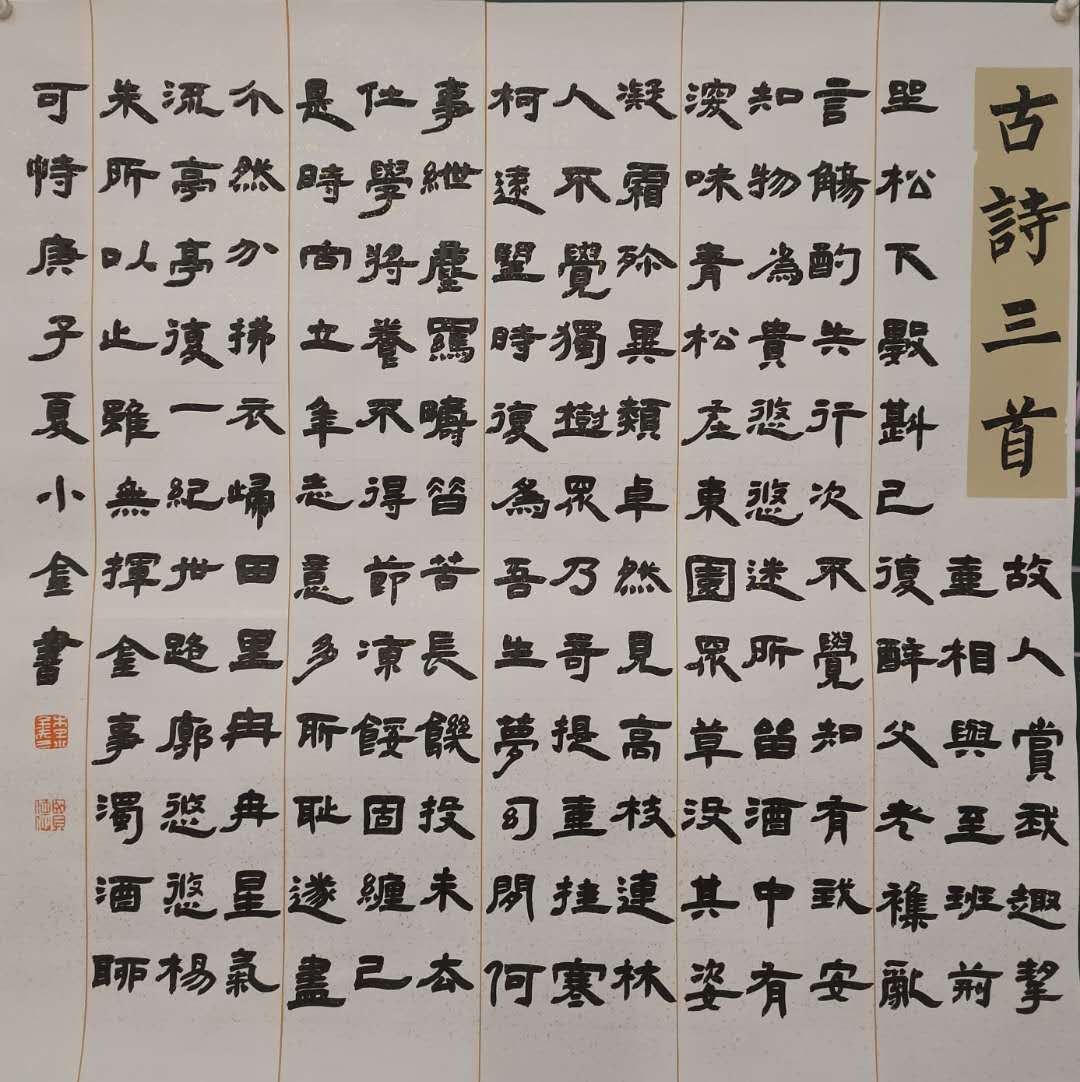 古詩三首
故人賞我趣挈
壺相與至班荊
坐松下數斟已復醉父老雜亂
言觴酌失行次不覺知有我安
知物為貴悠悠迷所留酒中有
深味青松在東園眾草沒其姿
凝霜殄異類卓然見高枝連林
人不覺獨樹眾乃奇提壺挂寒
柯遠望時復為吾生夢幻間何
事紲塵羈疇昔苦長飢投耒去
仕學將養不得節凍餒固纏己
是時向立年志意多所恥遂盡
介然分拂衣歸田里冉冉星氣
流亭亭復一紀世路廓悠悠楊
朱所以止雖無揮金事濁酒聊
可恃庚子夏小金書